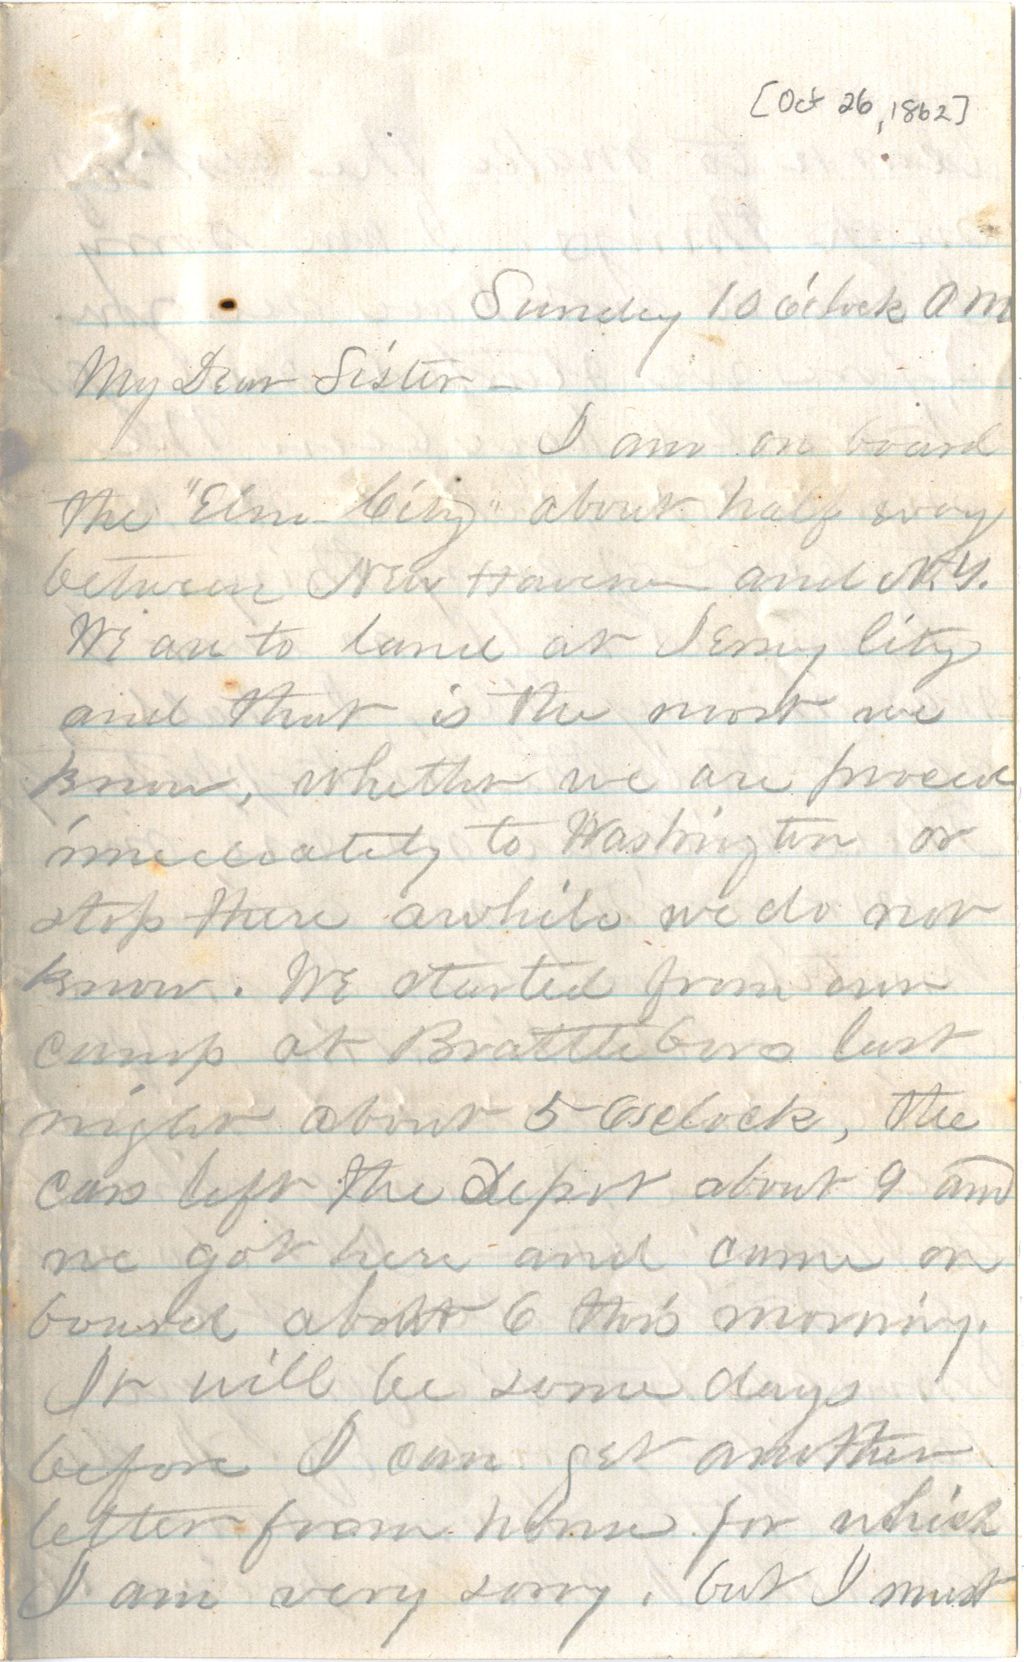 [Oct 26, 1862]
Sunday 10 o'clock A M
My Dear Sister -
I am on board
the "Elm City" about half way
between New Haven and N.Y.
We are to land at Jersey City
and that is the most we
know, whether we are proceed
immediately to Washington or
stop there awhile we do not
know. We started from our
camp at Brattleboro last
night about 5 Oclock, the
cars left the depot about 9 and
we got here and came on
board about 6 this morning.
It will be some days
before I can get another
letter from home for which
I am very sorry, but I must